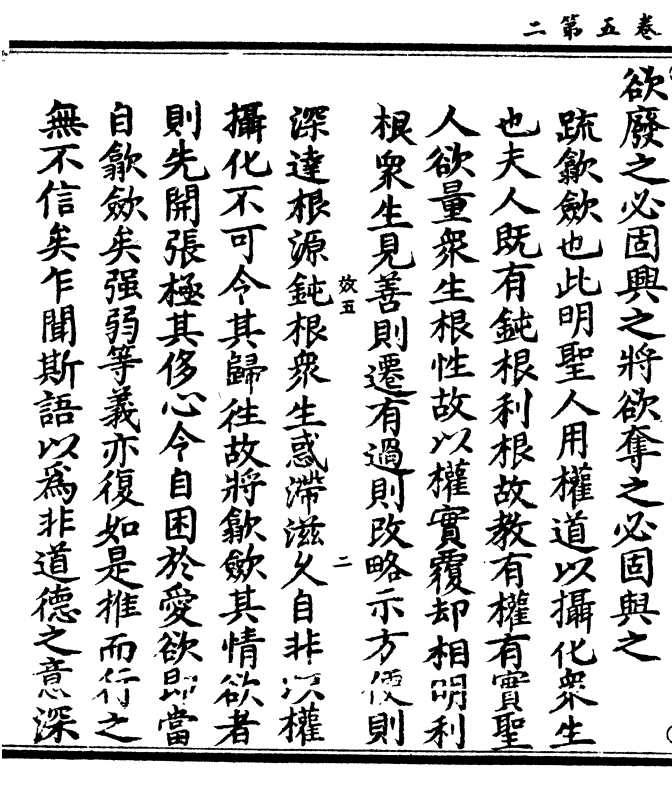 二第五卷
欲廢之必固興之將欲奪之必固與之
疏歙歛也此明聖人用權道以攝化衆生
也夫人既有鈍根利根故教有權有實聖
人欲量衆生根性故以權實覆却相明利
根衆生見善則遷有過則改略示方便則
效五
二
深達根源鈍根衆生惑滯滋久自非以權
攝化不可令其歸往故將歙歛其情欲者
則先開張極其侈心令自困於愛欲即當
自歙歛矣强弱等義亦復如是推而行之
無不信矣乍聞斯語以爲非道德之意深